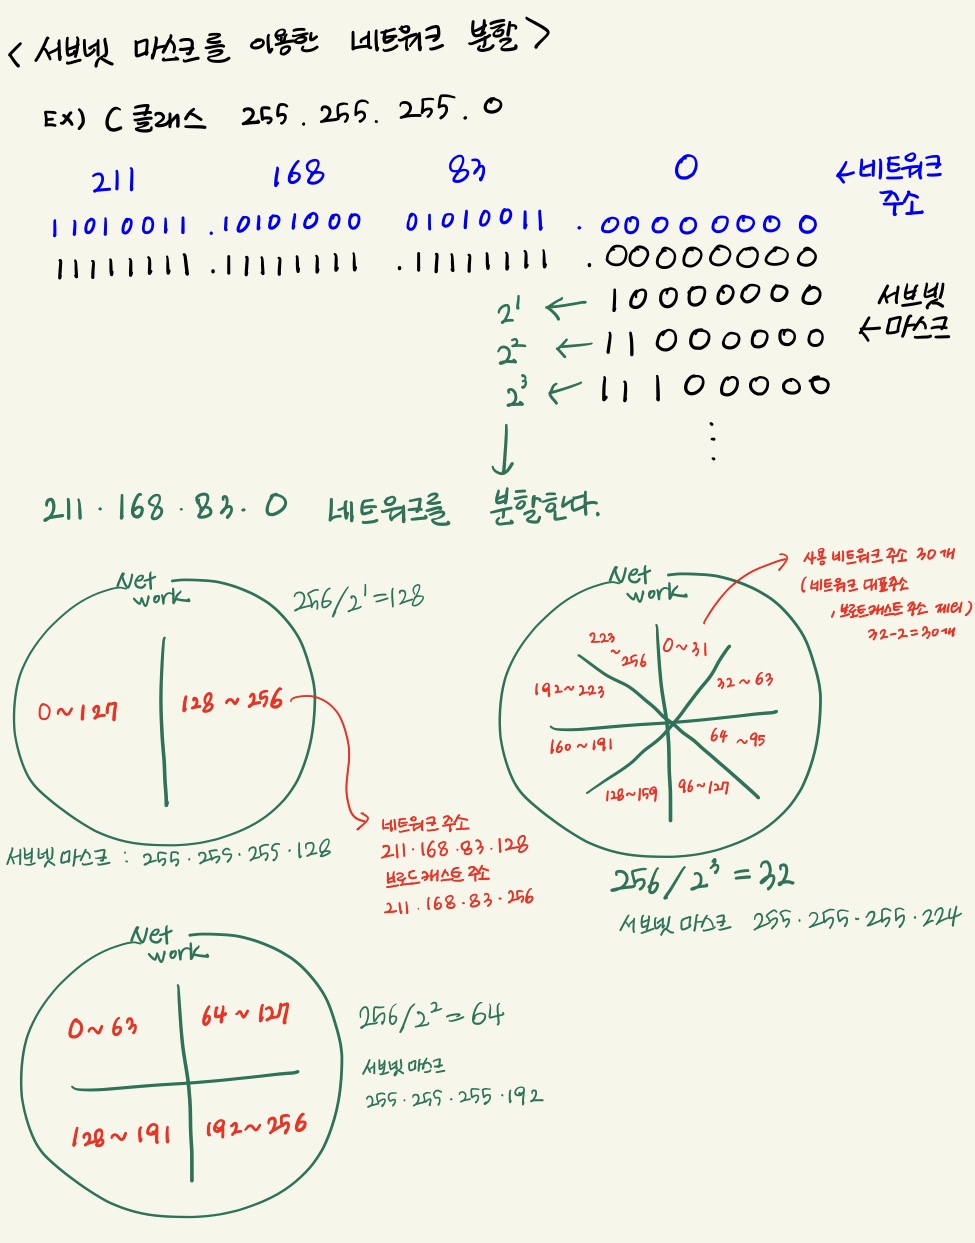 < 서브넷 마스크를 이용한 네트워크 분할 >
EX) C 클래스 255 . 255 . 255 . 0
211 168 83 0 ← 네트워크 주소
11010011 . 10101000 01010011 . 00000000
11111111 . 11111111 . 11111111 . 00000000
2¹ ← 10000000 서브넷
2² ← 11000000 ← 마스크
2³ ← 11100000
⋮
↓
211 · 168 · 83 · 0 네트워크를 분할한다.
Net
work
256/2¹=128
0 ~ 127
128 ~ 256
서브넷 마스크 : 255 · 255 · 255 · 128
네트워크 주소
211 · 168 · 83 · 128
브로드캐스트 주소
211 · 168 · 83 · 256
Net
work
사용 네트워크 주소 30개
(네트워크 대표주소
, 브로트캐스트 주소 제외)
32-2=30개
0~31
32~63
64 ~95
96~127
128~159
160~191
192~223
223
~
256
256/2³ = 32
서브넷 마스크 255 · 255 · 255 · 224
Net
work
0~ 63
64 ~ 127
128 ~ 191
192 ~ 256
256/2² = 64
서브넷 마스크
255 · 255 · 255 · 192